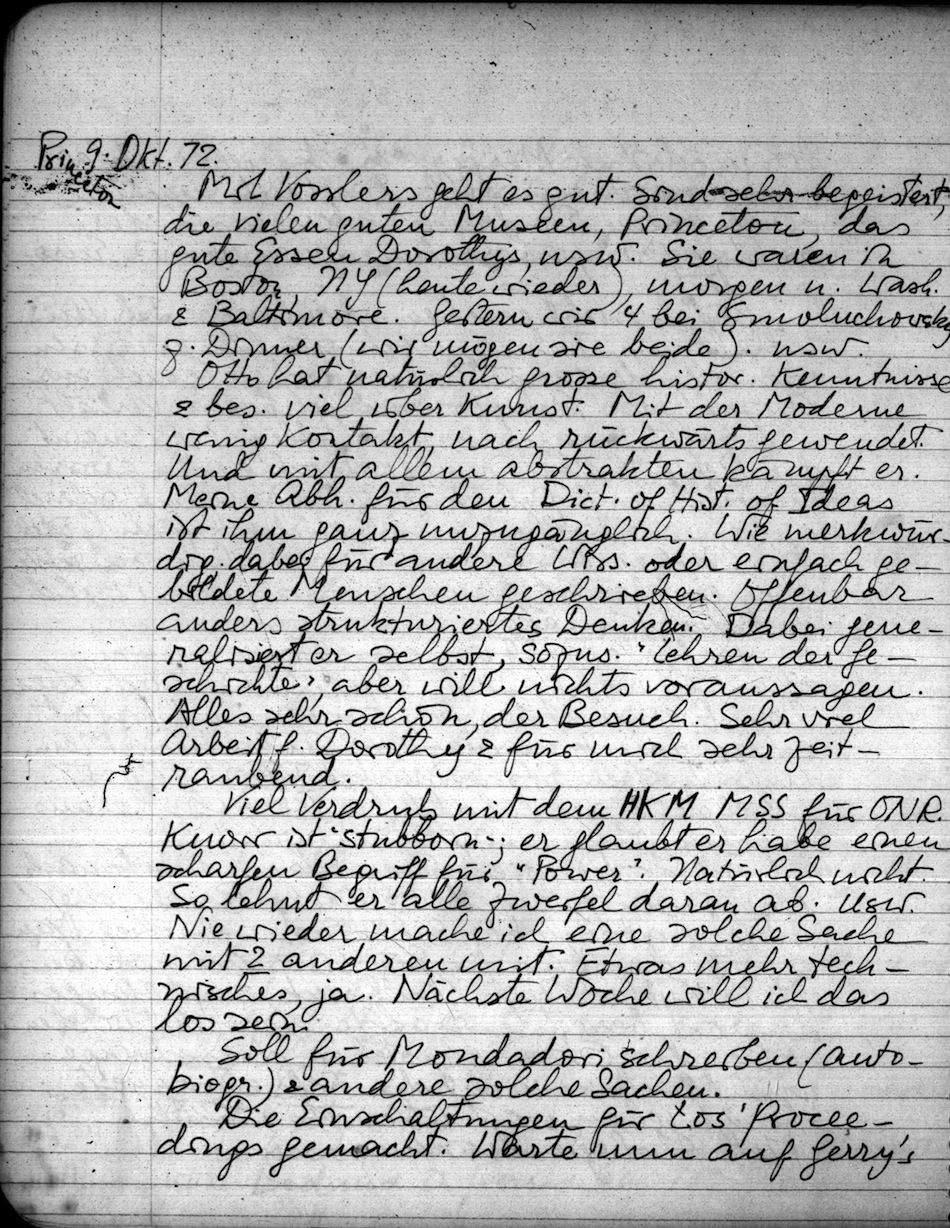 Princeton 9. Okt. 72.
Mit Vosslers geht es gut. Sind sehr begeistert,
die vielen guten Museen, Princeton, das
gute Essen Dorothys, usw. Sie waren in
Boston, NY (heute wieder), morgen n. Wash.
& Baltimore. Gestern wir 4 bei Smoluchovsky
z. Dinner (wir mögen sie beide). usw.
Otto hat natürlich grosse histor. Kenntnisse
& bes. viel über Kunst. Mit der Moderne
wenig Kontakt, nach rückwärts gewendet.
Und mit allem abstrakten kämpft er.
Meine Abh. für den Dict. of Hist. of Ideas
ist ihm ganz unzugänglich. Wie merkwür-
dig. dabei für andere Wiss. oder einfach ge-
bildete Menschen geschrieben. Offenbar
anders strukturiertes Denken. Dabei gene-
ralisiert er selbst, sozus. "Lehren der Ge-
schichte", aber will nichts voraussagen.
Alles sehr schön, der Besuch. Sehr viel
Arbeit f. Dorothy & für mich sehr zeit-
raubend.
Viel Verdruss mit dem HKM MSS für ONR.
Knorr ist "stubborn"; er glaubt er habe einen
scharfen Begriff für "Power". Natürlich nicht.
So lehnt er alle Zweifel daran ab. usw.
Nie wieder mache ich eine solche Sache
mit 2 anderen mit. Etwas mehr tech-
nisches, ja. Nächste Woche will ich das
los sein.
Soll für Mondadori schreiben (auto-
biogr.) & andere solche Sachen.
Die Einschaltungen für Łos' Procee-
dings gemacht. Warte nun auf Gerry's